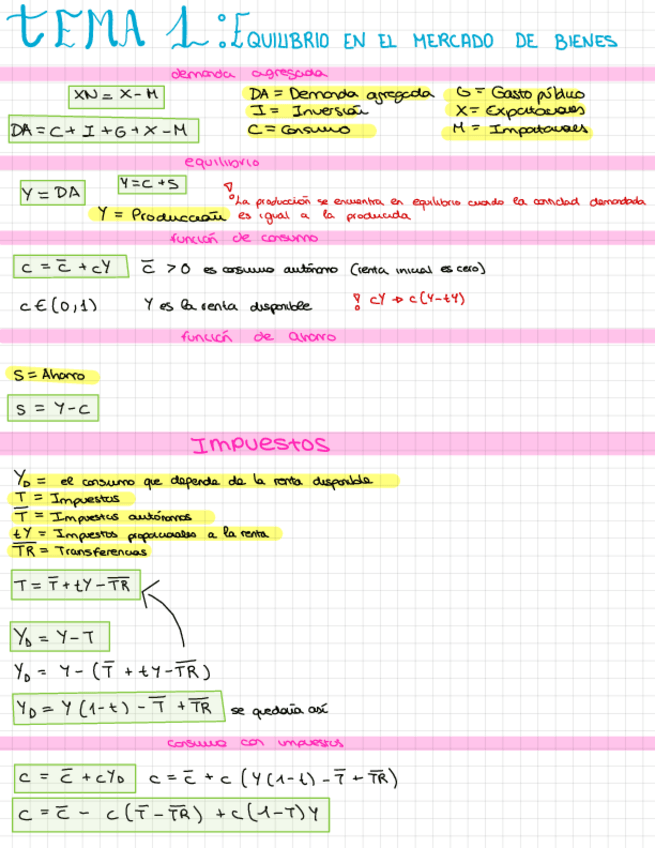 TEMA 1: EQUILIBRIO EN EL MERCADO DE BIENES
demanda agregada
XN = X - M
DA = Demanda agregada
G = Gasto público
I = Inversión
X = Exportaciones
DA = C + I + G + X - M
C = Consumo
M = Importaciones
equilibrio
Y = DA
Y = C + S
! La producción se encuentra en equilibrio cuando la cantidad demandada
Y = Producción
es igual a la producida
función de consumo
C = C̅ + cY
C̅ > 0 es consumo autónomo (renta inicial es cero)
c ∈ (0,1)
Y es la renta disponible
! cY → c(Y-tY)
función de ahorro
S = Ahorro
S = Y - C
Impuestos
Y_D = el consumo que depende de la renta disponible
T = Impuestos
T̅ = Impuestos autónomos
tY = Impuestos proporcionales a la renta
T̅R̅ = Transferencias
T = T̅ + tY - T̅R̅
Y_D = Y - T
Y_D = Y - (T̅ + tY - T̅R̅)
Y_D = Y (1-t) - T̅ + T̅R̅ se quedaría así
consumo con impuestos
C = C̅ + cY_D
C = C̅ + c (Y(1-t) - T̅ + T̅R̅)
C = C̅ - c(T̅ - T̅R̅) + c(1-T)Y